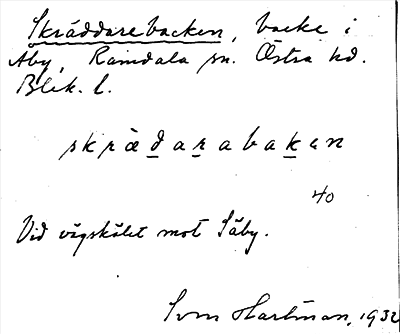 Skräddarebacken, backe i
Åby, Ramdala sn. Östra hd.
Blek. l.
skræd̲ar̲abak̲en
40
Vid vägskälet mot Säby.
Sven Hartman, 1932